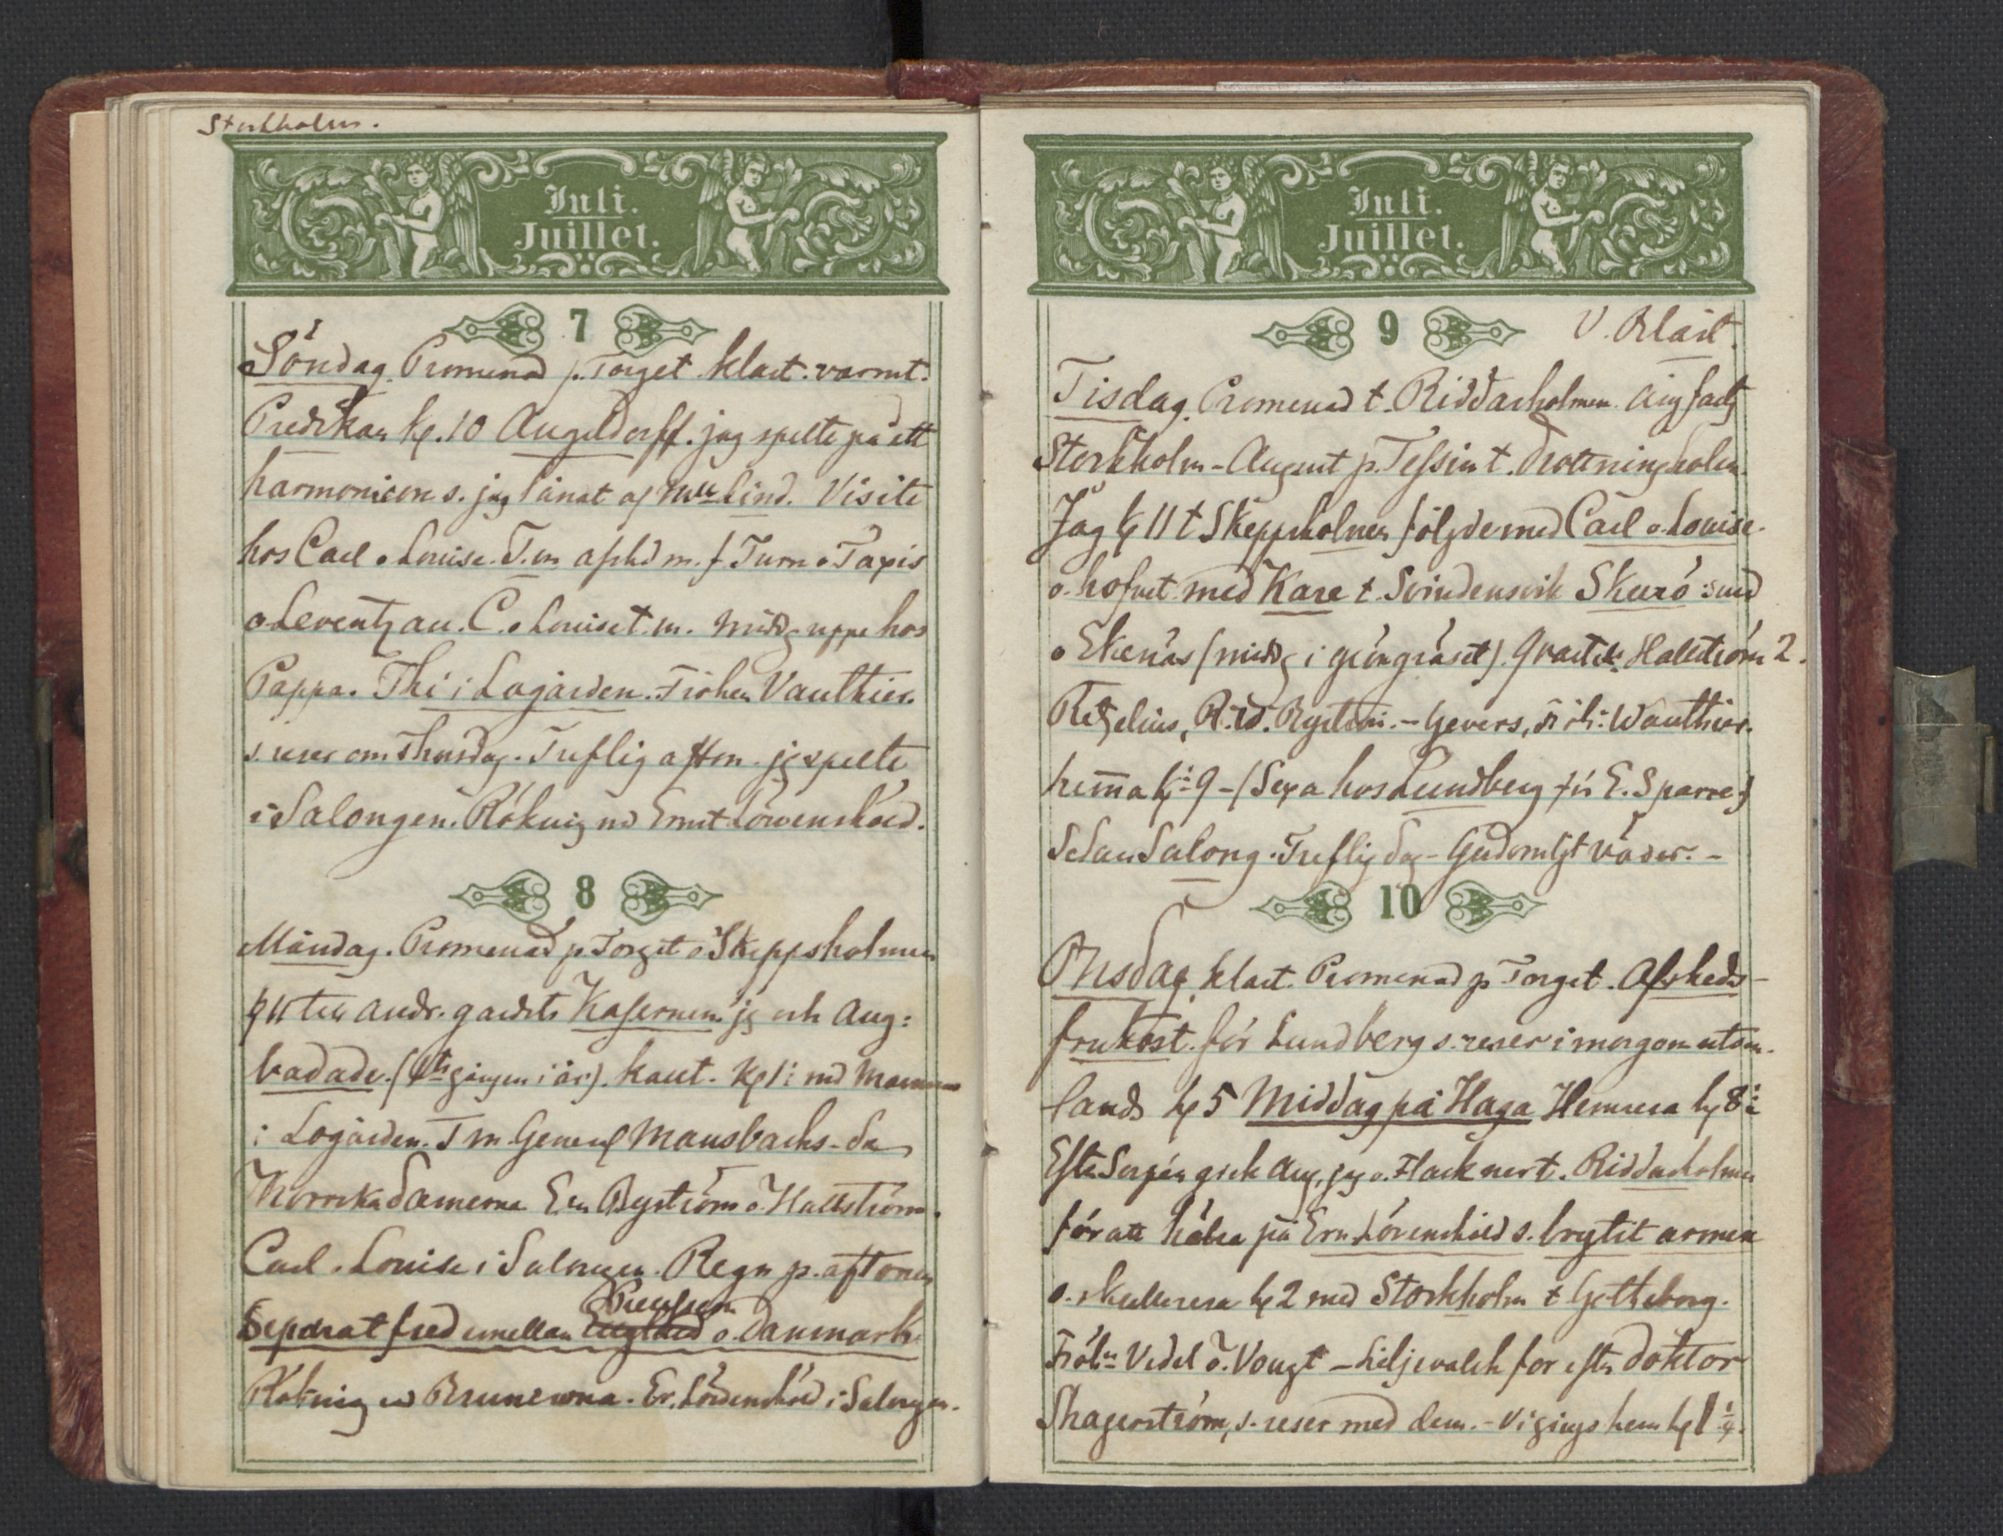 Stockholm.
Juli.
Juillet.
7
Söndag. Promenad p. Torget. klart. varmt.
Predikan kl. 10 Angeldorff. jag spelte på ett
harmonicon s. jag lånat af Mll Lind. Visite
hos Carl o Louise. T.m. afskd m. f Turn o Taxis
o Leventzau. C. o Louise t.m. midd. uppe hos
Pappa. Thé i Logården. Fröken Vauthier
s. reser om Thorsdag. Treflig afton. jg spelte
i Salongen. Rökning Ernst Löwenskiöld.
8
Måndag. Promenad p. Torget o Skeppsholmen
till Andr. gardets Kasernen jg och Aug:
badade. (1sta gången i år). hemt. Kl 1 Mamma
i Logården. T m. General Mansbachs. Da
Norrska damerna Byström o Hallström.
Carl. Louise i Salongen. Regn p. aftonen
Preussen
Separat fred emellan England o. Danmark.
Rökning Brunerona. Er. Löwenskiöld i Salongen.
Juli.
Juillet.
9
V. Klart.
Tisdag. Promenad t. Riddarholmen. Ångfart.
Stockholm – August p. Tessin t. Drottningholm.
Jag kl 11 t Skeppsholmen följde med Carl o. Louise.
o. hofvet med Kare t. Svindersvik Skurö sund
o Ekenäs (midd. i gröngräset). Qvartett: Hallström 2.
Retzelius, Byström. – Gevers, frök: Wauthier.
hemma kl 9 – (Sexa hos Lundberg för E. Sparre)
Sedan Salong. Treflig dag – Gudomligt väder. –
10
Onsdag. klart. Promenad p Torget. Afskeds–
frukost. för Lundberg s. reser i morgon utom–
lands kl 5 Middag på Haga Hemresa kl 8
Efter Soupén gick Aug, jag o. Flack ner t. Riddarholmen
för att helsa på Ern Löwenskiöld s. brytit armen
o. skulle resa kl 2 med Stockholm t Götheborg.
Frök: Vedel o. Vougt – Liljevalch for efter doktor
Skagerström, s. reser med dem. – Vi gingo hem kl 1 1/4.